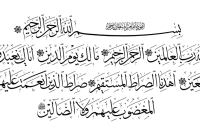 بسم الله الرحمن الرحيم
رب العالمين الرحمن الرحيم مالك يوم الدين إياك نعبد
اهدنا الصراط المستقيم صراط الذين أنعمت عليهم
المغضوب عليهم ولا الضالين